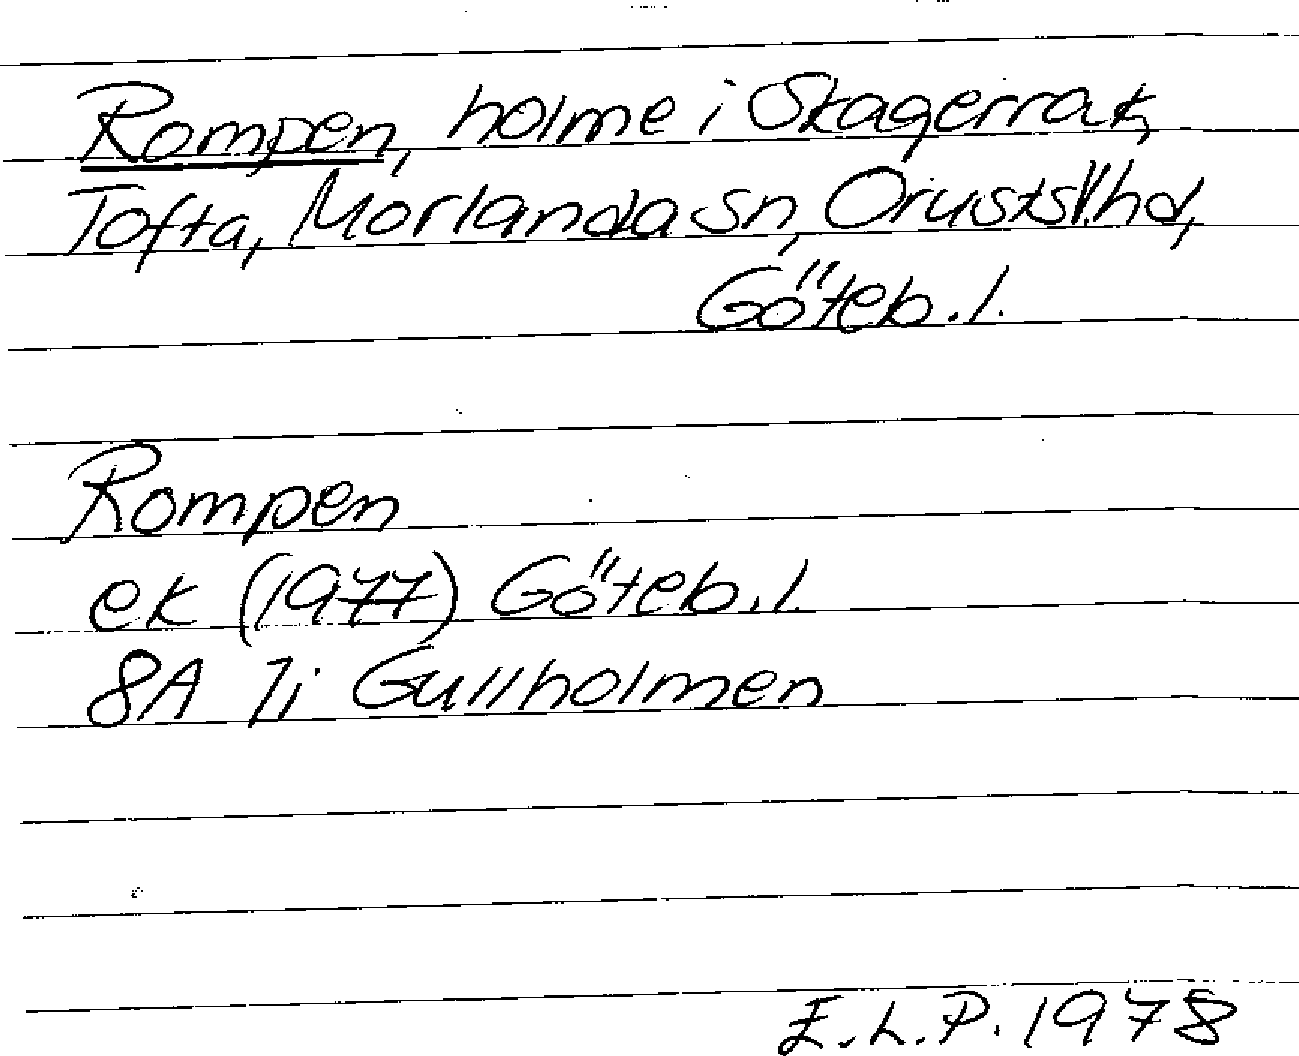 Rompen, holme i Skagerrak,
Tofta, Morlanda sn, Orusts V. hd,
Göteb. l.
Rompen
ek (1977) Göteb. l.
8A 7i Gullholmen
E.L.P. 1978